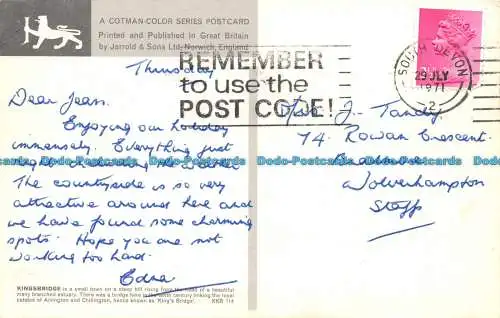 A COTMAN-COLOR SERIES POSTCARD
Printed and Published in Great Britain
by Jarrold & Sons Ltd, Norwich, England
REMEMBER
to use the
POST CODE!
SOUTH DEVON
29 JLY
1971
2
Thursday
Dear Jean,
Enjoying our holiday
immensely. Everything just
right including the weather
The countryside is so very
attractive around here and
we have found some charming
spots. Hope you are not
working too hard.
Edna
Miss J. Tandy
74, Rowan Crescent
Wolverhampton
Staffs
KINGSBRIDGE is a small town on a steep hill rising from the head of a beautiful
many branched estuary. There was a bridge here in the tenth century linking the royal
estates of Alvington and Chillington, hence known as 'King's Bridge'.
KKB 114
Dodo-Postcards Dodo-Postcards Dodo-Postcards Dodo-Postcards